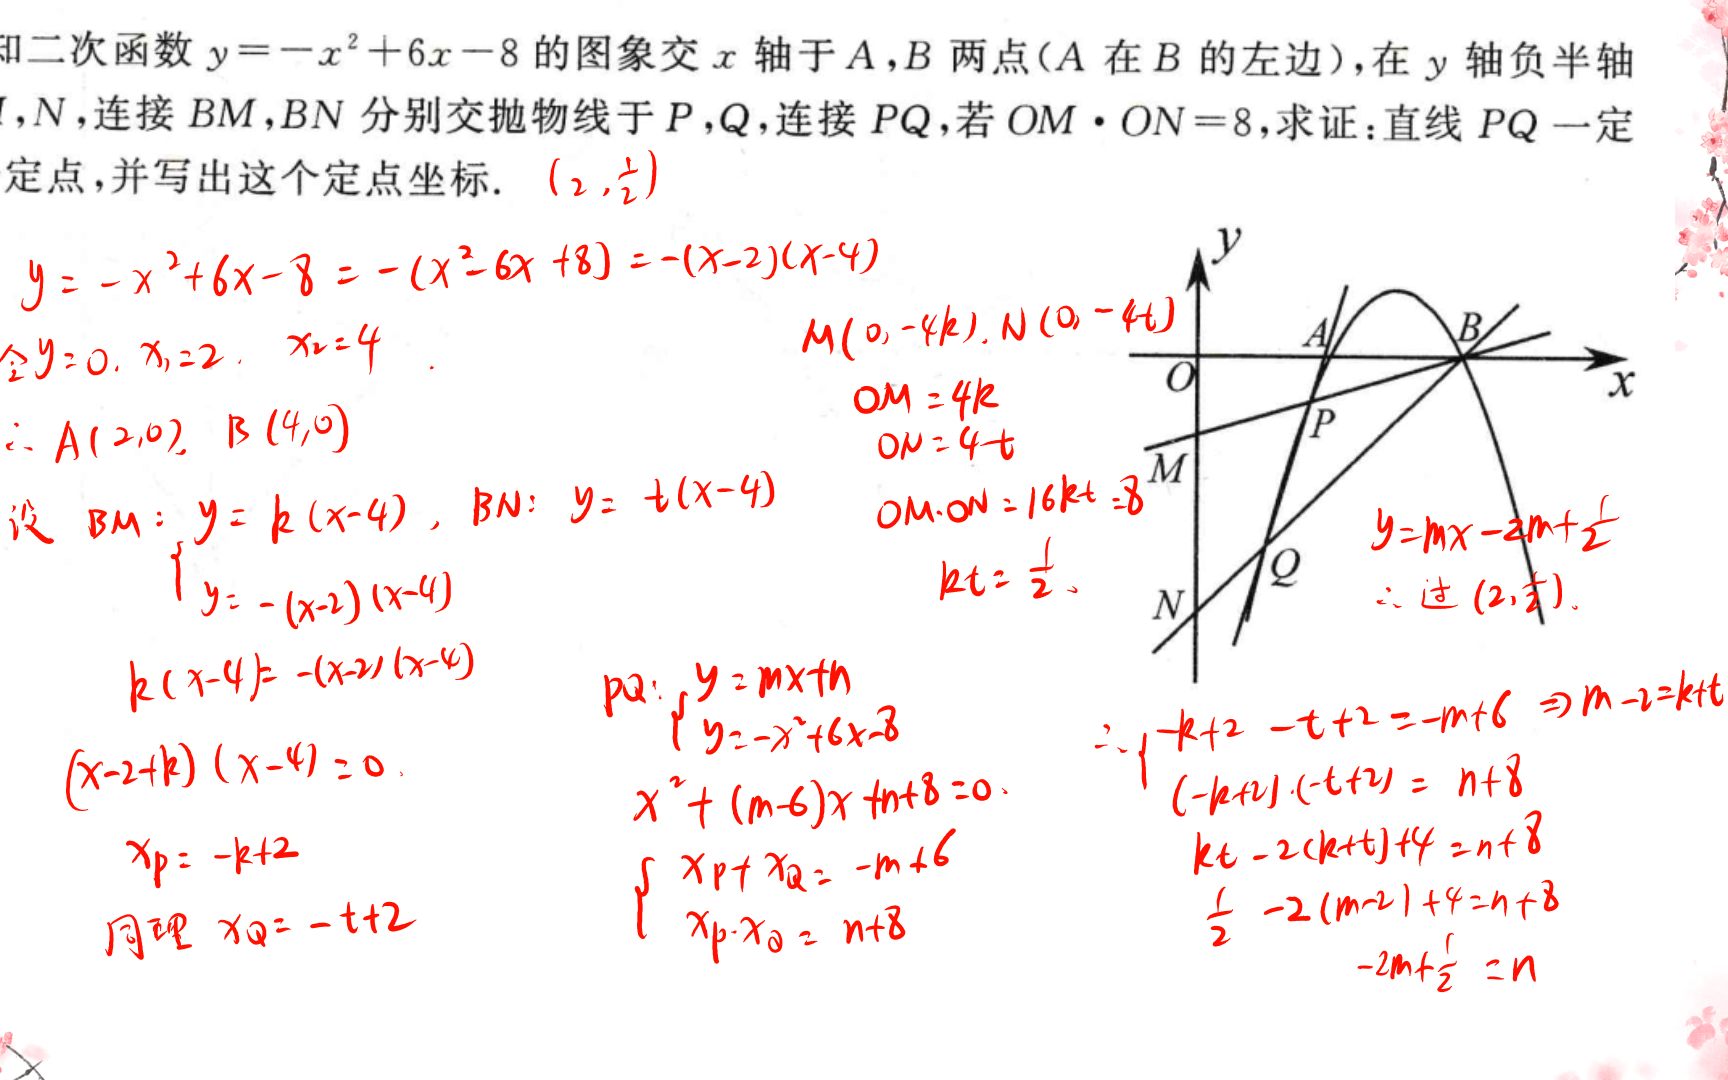 和二次函数 y=-x²+6x-8 的图象交 x 轴于 A,B 两点(A 在 B 的左边),在 y 轴负半轴
,N,连接 BM,BN 分别交抛物线于 P,Q,连接 PQ,若 OM·ON=8,求证:直线 PQ 一定
定点,并写出这个定点坐标. (2,1/2)
y=-x²+6x-8=-(x²-6x+8)=-(x-2)(x-4)
令y=0. x₁=2. x₂=4.
∴A(2,0), B(4,0)
设 BM: y=k(x-4), BN: y=t(x-4)
y=-(x-2)(x-4)
k(x-4)=-(x-2)(x-4)
(x-2+k)(x-4)=0.
xP=-k+2
同理 xQ=-t+2
M(0,-4k), N(0,-4t)
OM=4k
ON=4t
OM·ON=16kt=8
kt=1/2.
PQ: y=mx+n
y=-x²+6x-8
x²+(m-6)x+n+8=0.
xP+xQ=-m+6
xP·xQ=n+8
∴ -k+2-t+2=-m+6 ⇒ m-2=k+t
(-k+2)·(-t+2)=n+8
kt-2(k+t)+4=n+8
1/2-2(m-2)+4=n+8
-2m+1/2=n
y=mx-2m+1/2
∴过(2,1/2).
y
A
B
O
x
P
M
Q
N